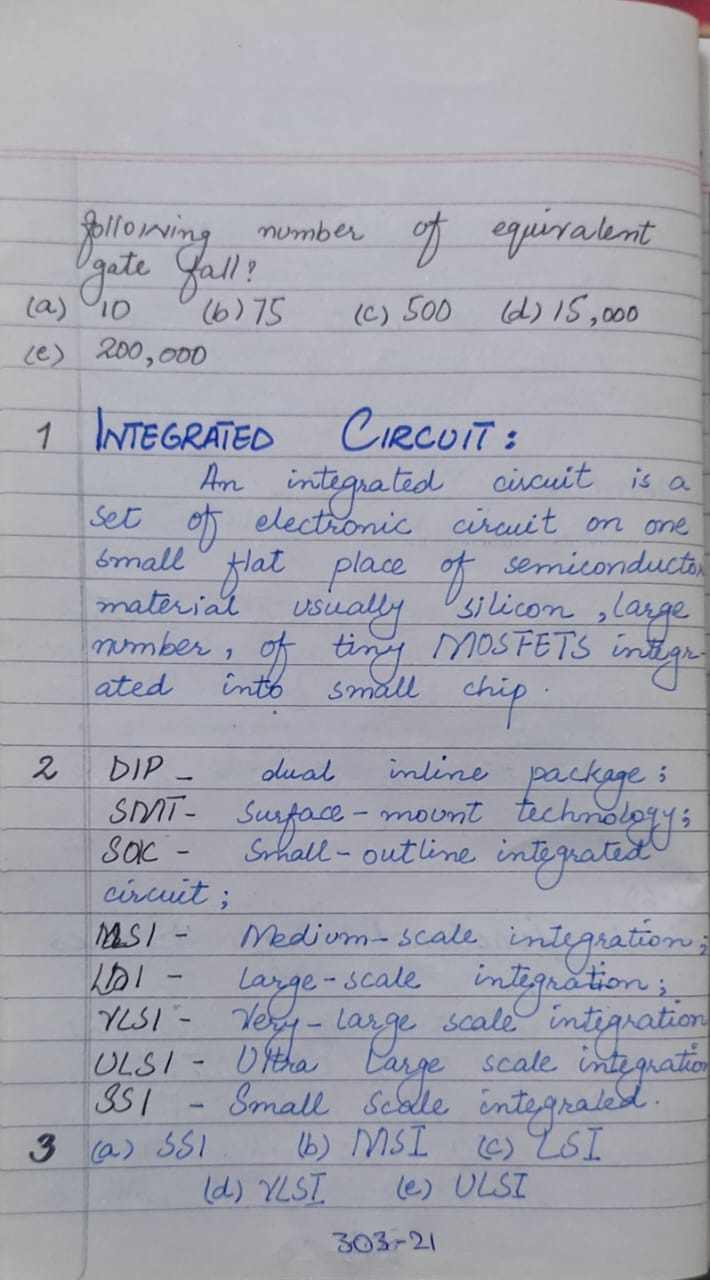 following number of equivalent
gate fall?
(a) 10 (b) 75 (c) 500 (d) 15,000
(e) 200,000
1 INTEGRATED CIRCUIT :
An integrated circuit is a
set of electronic circuit on one
small flat place of semiconductor
material usually silicon , large
number, of tiny MOSFETS integr-
ated into small chip .
2 DIP - dual inline package ;
SMT - Surface - mount technology ;
SOIC - Small - outline integrated
circuit ;
MSI - Medium - scale integration ;
LSI - Large - scale integration ;
VLSI - Very - large scale integration
ULSI - Ultra Large scale integration
SSI - Small Scale integrated .
3 (a) SSI (b) MSI (c) LSI
(d) VLSI (e) ULSI
303-21